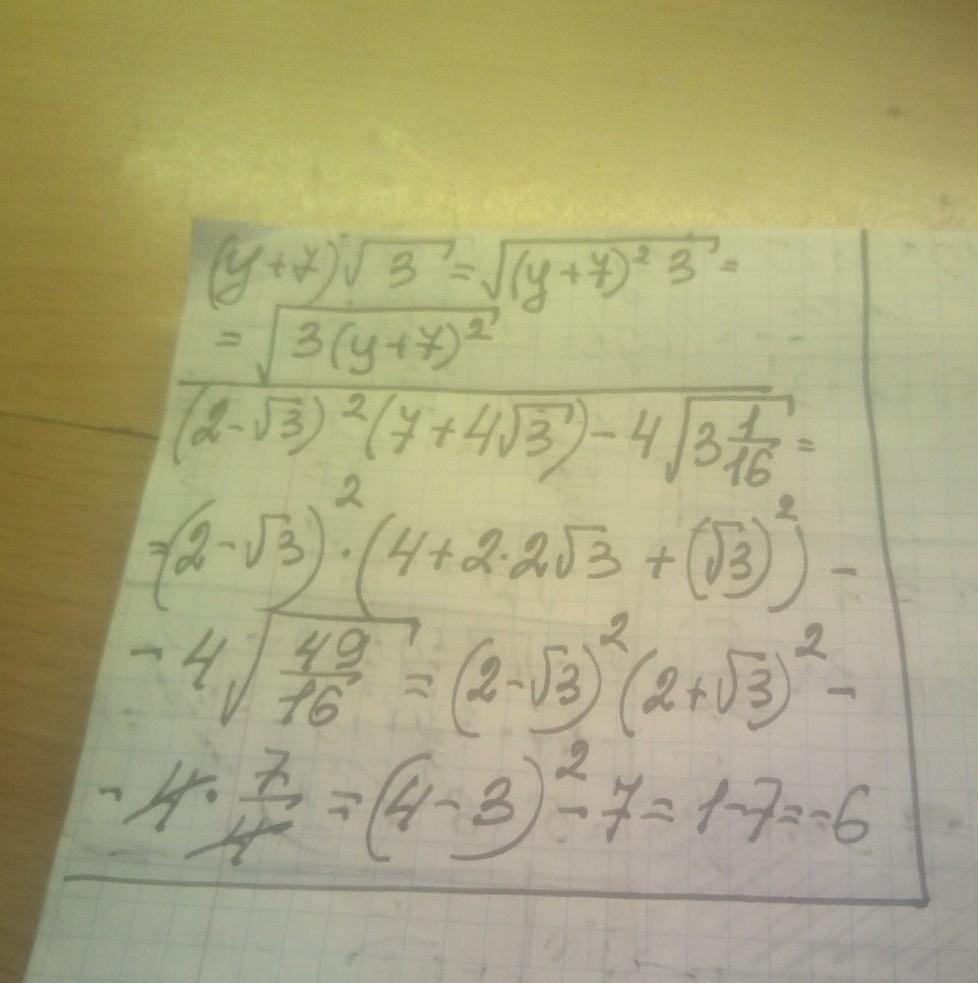 (y+7)√3 = √(y+7)² 3 =
= √3(y+7)²
(2-√3)²(7+4√3)-4√3 1/16 =
=(2-√3)²·(4+2·2√3+(√3)²)-
-4√49/16 = (2-√3)²(2+√3)²-
-4·7/4 = (4-3)²-7=1-7=-6